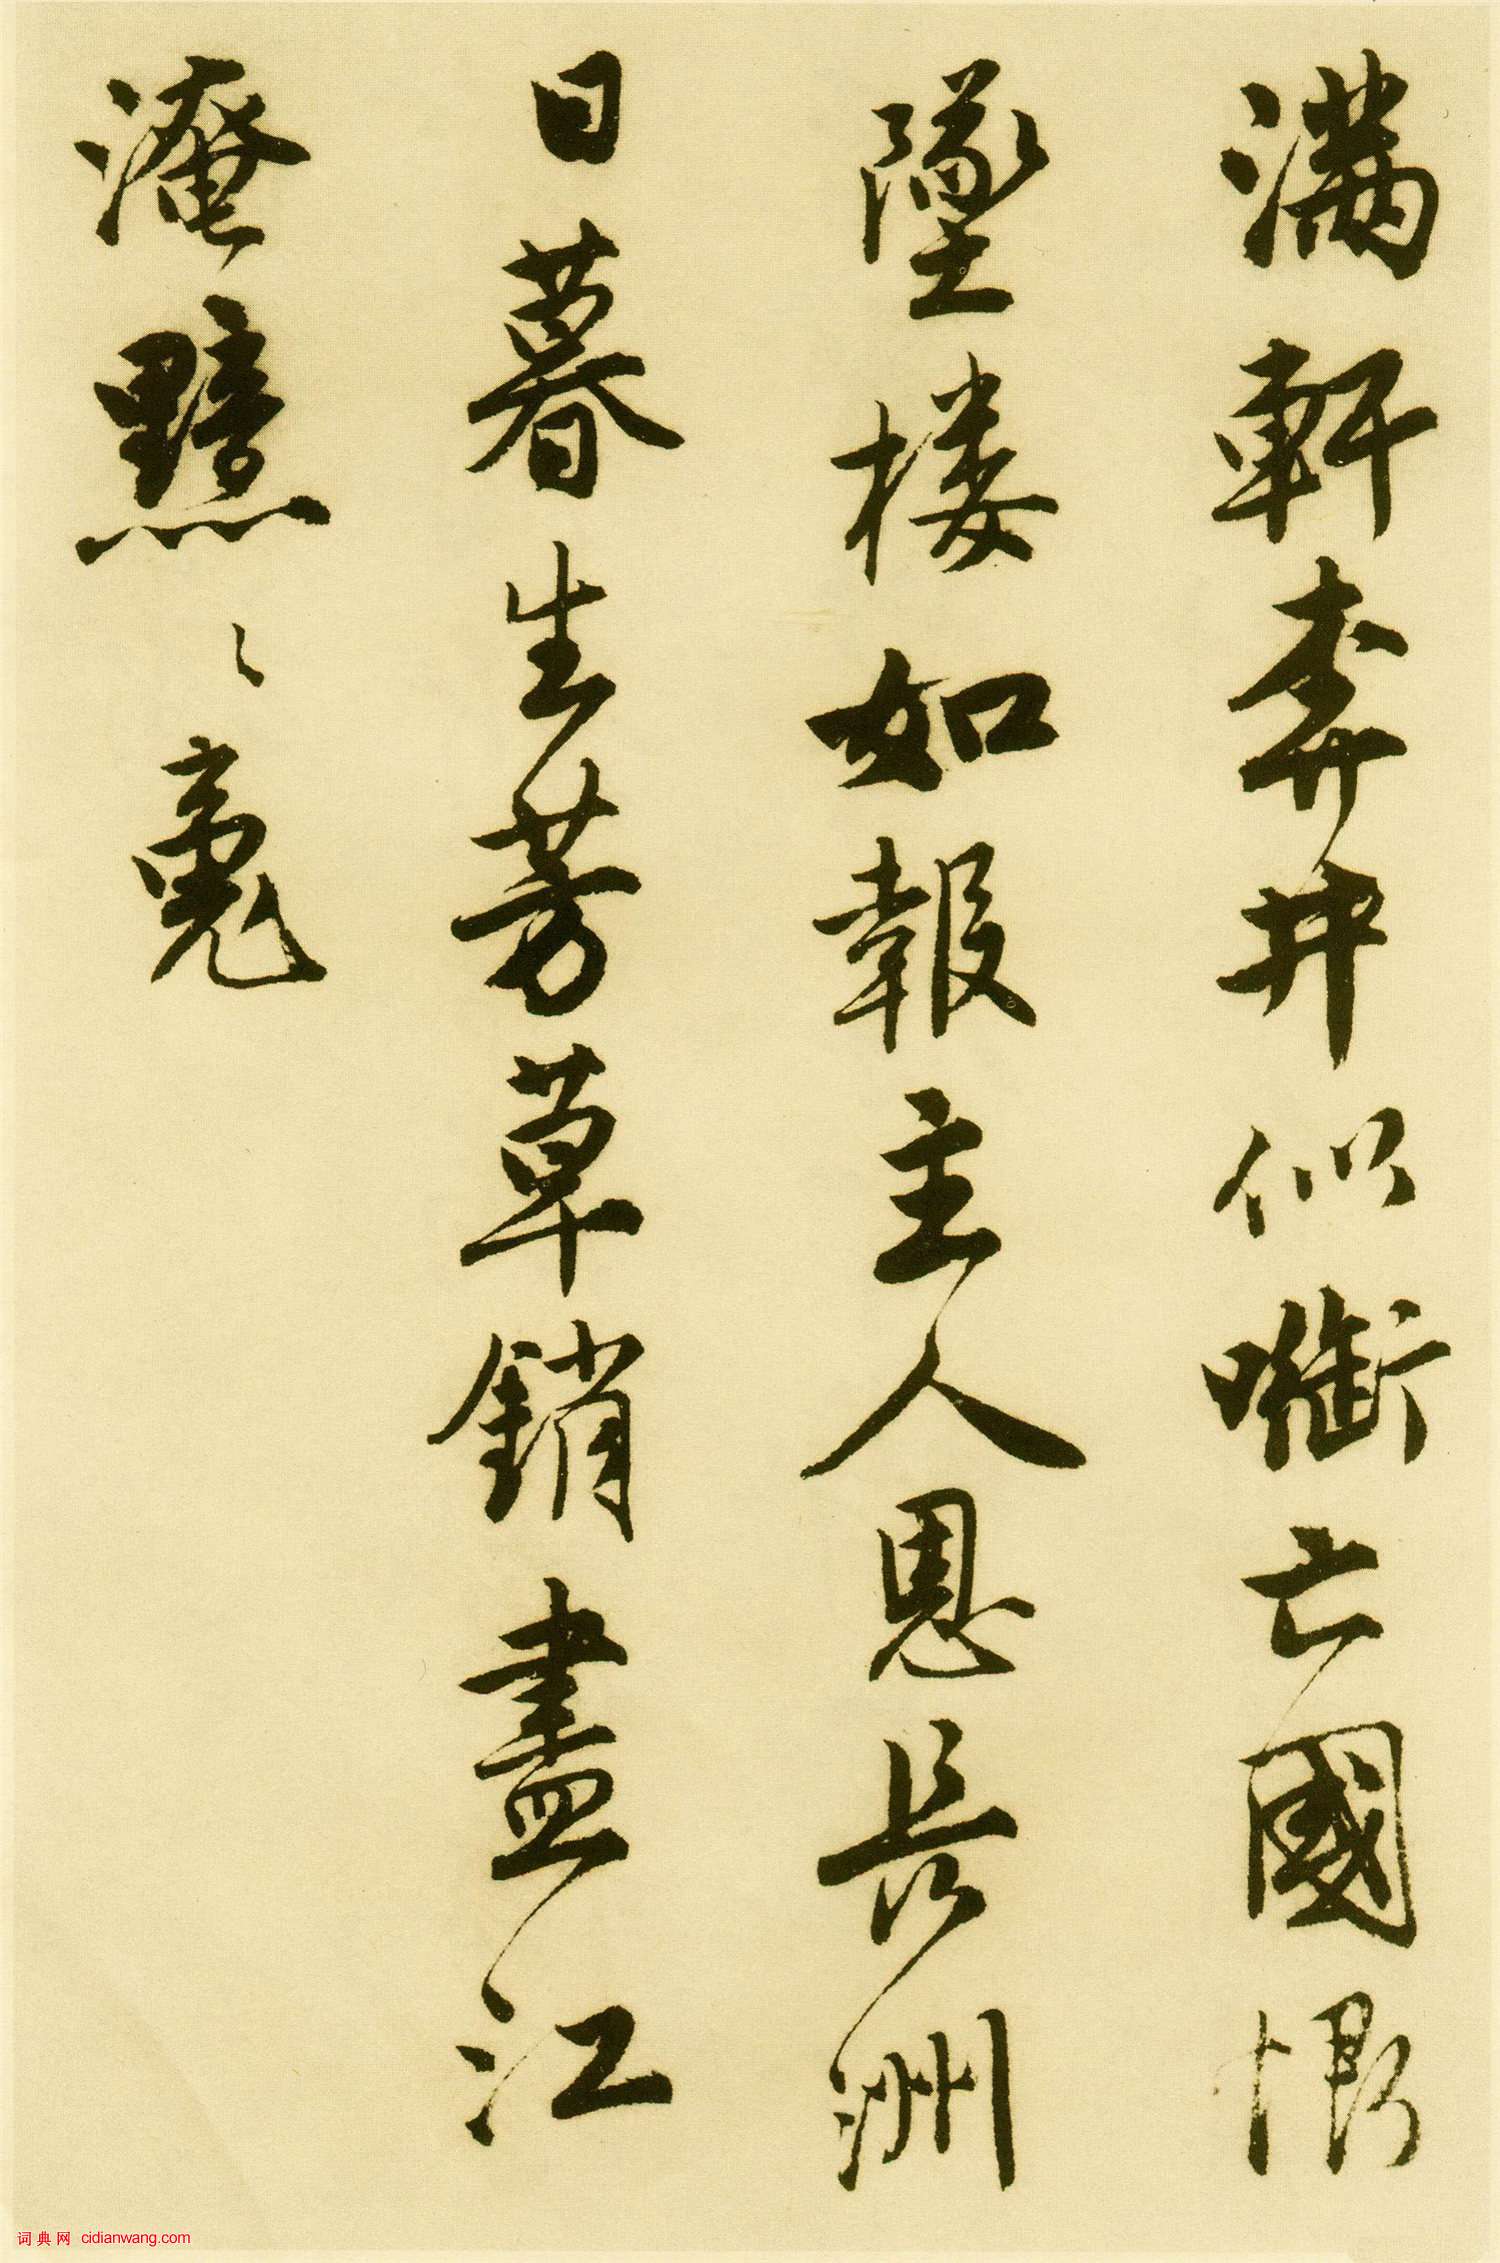 滿軒奔井似啣亡國恨
墜楼如報主人恩長洲
日暮生芳草銷盡江
淹黯〻䰟
词典网 cidianwang.com